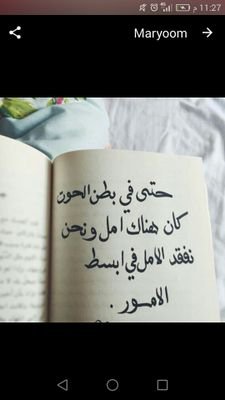 11:27 م
Maryoom
حتى في بطن الحوت
كان هناك امل ونحن
نفقد الامل في ابسط
الامور .